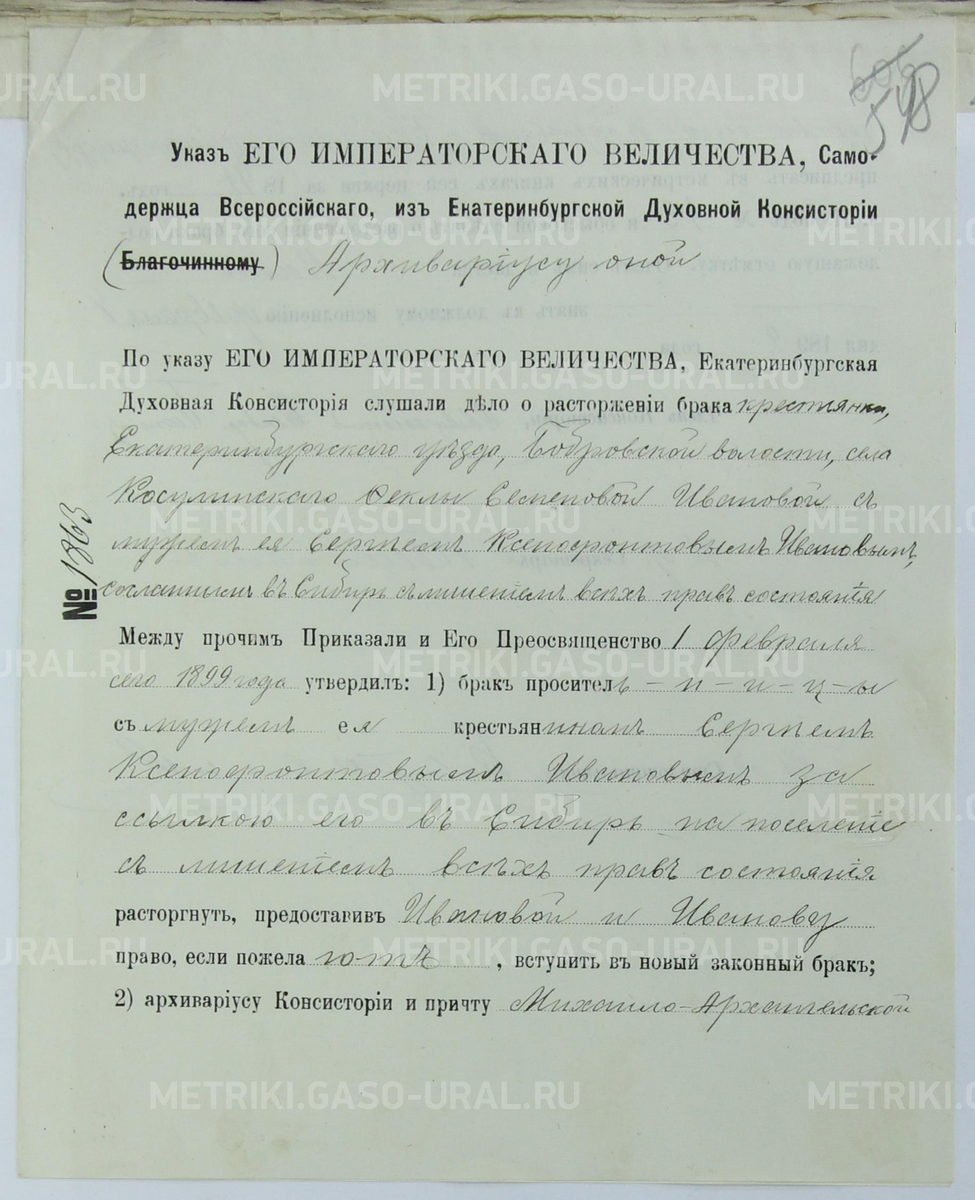 606
598
Указъ ЕГО ИМПЕРАТОРСКАГО ВЕЛИЧЕСТВА, Само-
держца Всероссійскаго, изъ Екатеринбургской Духовной Консисторіи
(Благочинному) Архиваріусу оной
По указу ЕГО ИМПЕРАТОРСКАГО ВЕЛИЧЕСТВА, Екатеринбургская
Духовная Консисторія слушали дѣло о расторженіи брака крестьянки,
Екатеринбургскаго уѣзда, Бобровской волости, села
Косулинскаго Феклы Семеновой Ивановой съ
мужемъ ея Сергѣемъ Ксенофонтовымъ Ивановымъ,
сосланнымъ въ Сибирь съ лишеніемъ всѣхъ правъ состоянія
№ 1863
Между прочимъ Приказали и Его Преосвященство 1 февраля
сего 1899 года утвердилъ: 1) бракъ просител–ь–н–и–ц–ы
съ мужемъ ея крестьяниномъ Сергѣемъ
Ксенофонтовымъ Ивановымъ за
ссылкою его въ Сибирь на поселеніе
съ лишеніемъ всѣхъ правъ состоянія
расторгнуть, предоставивъ Ивановой и Иванову
право, если пожелаютъ, вступить въ новый законный бракъ;
2) архиваріусу Консисторіи и причту Михаило-Архангельской
METRIKI.GASO-URAL.RU